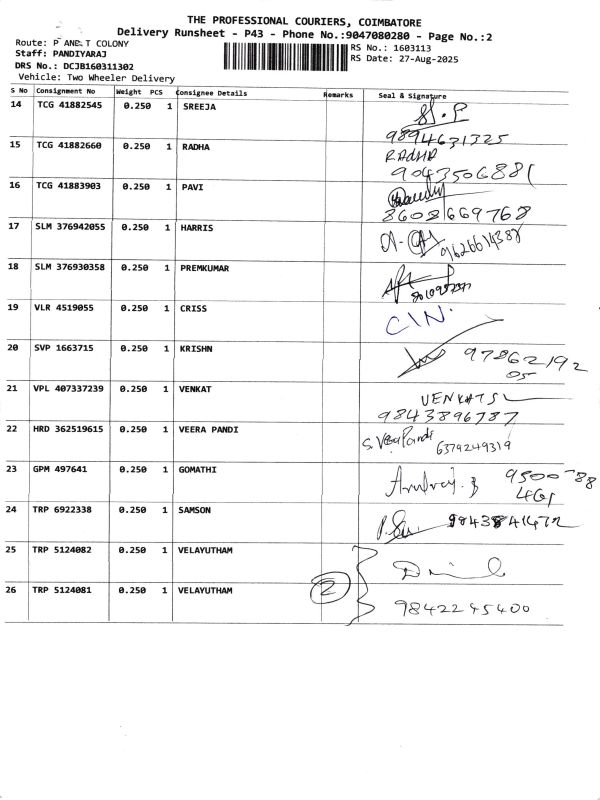 THE PROFESSIONAL COURIERS, COIMBATORE
Delivery Runsheet - P43 - Phone No.:9047080280 - Page No.:2
Route: P AND T COLONY
Staff: PANDIYARAJ
DRS No.: DCJB160311302
Vehicle: Two Wheeler Delivery
RS No.: 1603113
RS Date: 27-Aug-2025
S No Consignment No Weight PCS Consignee Details Remarks Seal & Signature
14 TCG 41882545 0.250 1 SREEJA
9894631325
15 TCG 41882660 0.250 1 RADHA RADHA
9043506881
16 TCG 41883903 0.250 1 PAVI
8608669768
17 SLM 376942055 0.250 1 HARRIS
18 SLM 376930358 0.250 1 PREMKUMAR
19 VLR 4519055 0.250 1 CRISS
20 SVP 1663715 0.250 1 KRISHN 97862192
05
21 VPL 407337239 0.250 1 VENKAT
9843896787
22 HRD 362519615 0.250 1 VEERA PANDI 6379249319
23 GPM 497641 0.250 1 GOMATHI
24 TRP 6922338 0.250 1 SAMSON
25 TRP 5124082 0.250 1 VELAYUTHAM
26 TRP 5124081 0.250 1 VELAYUTHAM 2 9842245400